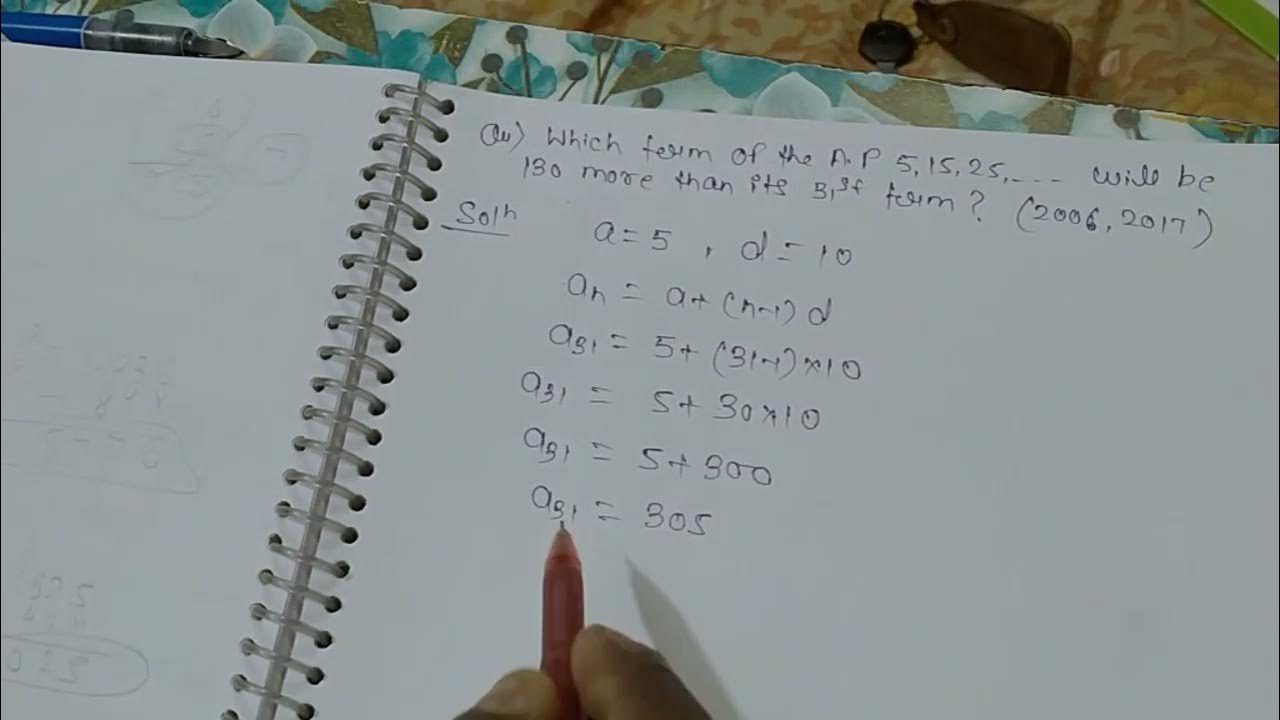 Qu) Which term of the A.P 5, 15, 25, .... will be
130 more than its 31st term? (2006, 2017)
Solh
a = 5 , d = 10
an = a + (n-1) d
a31 = 5 + (31-1) × 10
a31 = 5 + 30 × 10
a31 = 5 + 300
a31 = 305